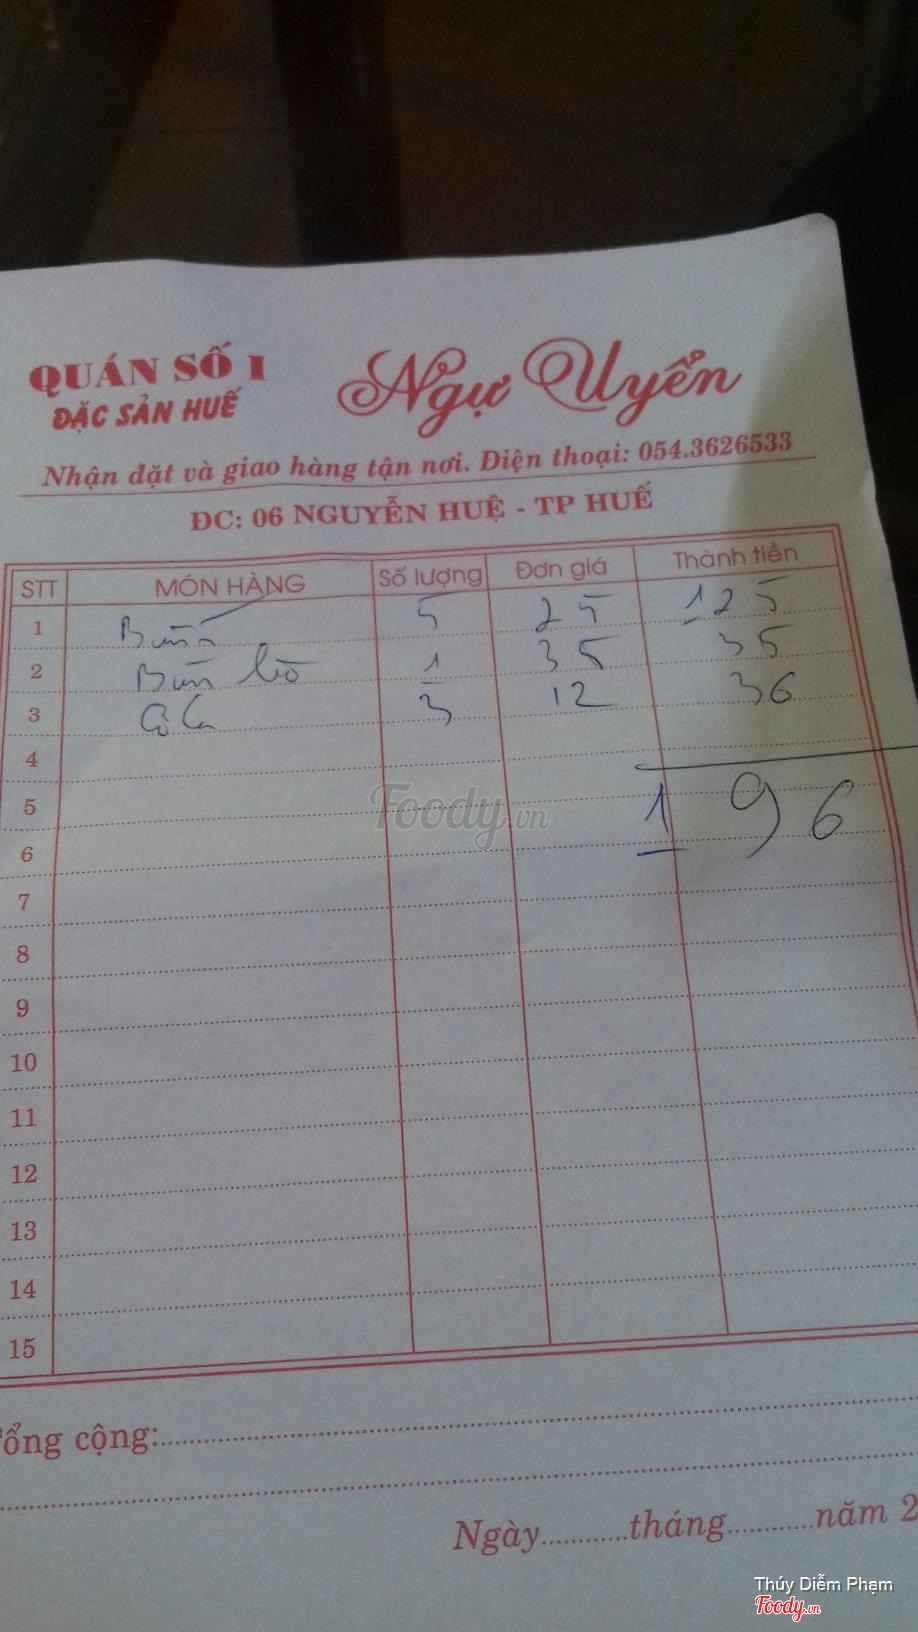 QUÁN SỐ 1 Ngự Uyển
ĐẶC SẢN HUẾ
Nhận đặt và giao hàng tận nơi. Điện thoại: 054.3626533
ĐC: 06 NGUYỄN HUỆ - TP HUẾ
STT MÓN HÀNG Số lượng Đơn giá Thành tiền
1 5 25 125
2 Bún bò 1 35 35
3 Cô Ca 3 12 36
4
5 196
6
7
8
9
10
11
12
13
14
15
Tổng cộng:
Ngày tháng năm 2
Foody.vn
Thúy Diễm Phạm
Foody.vn